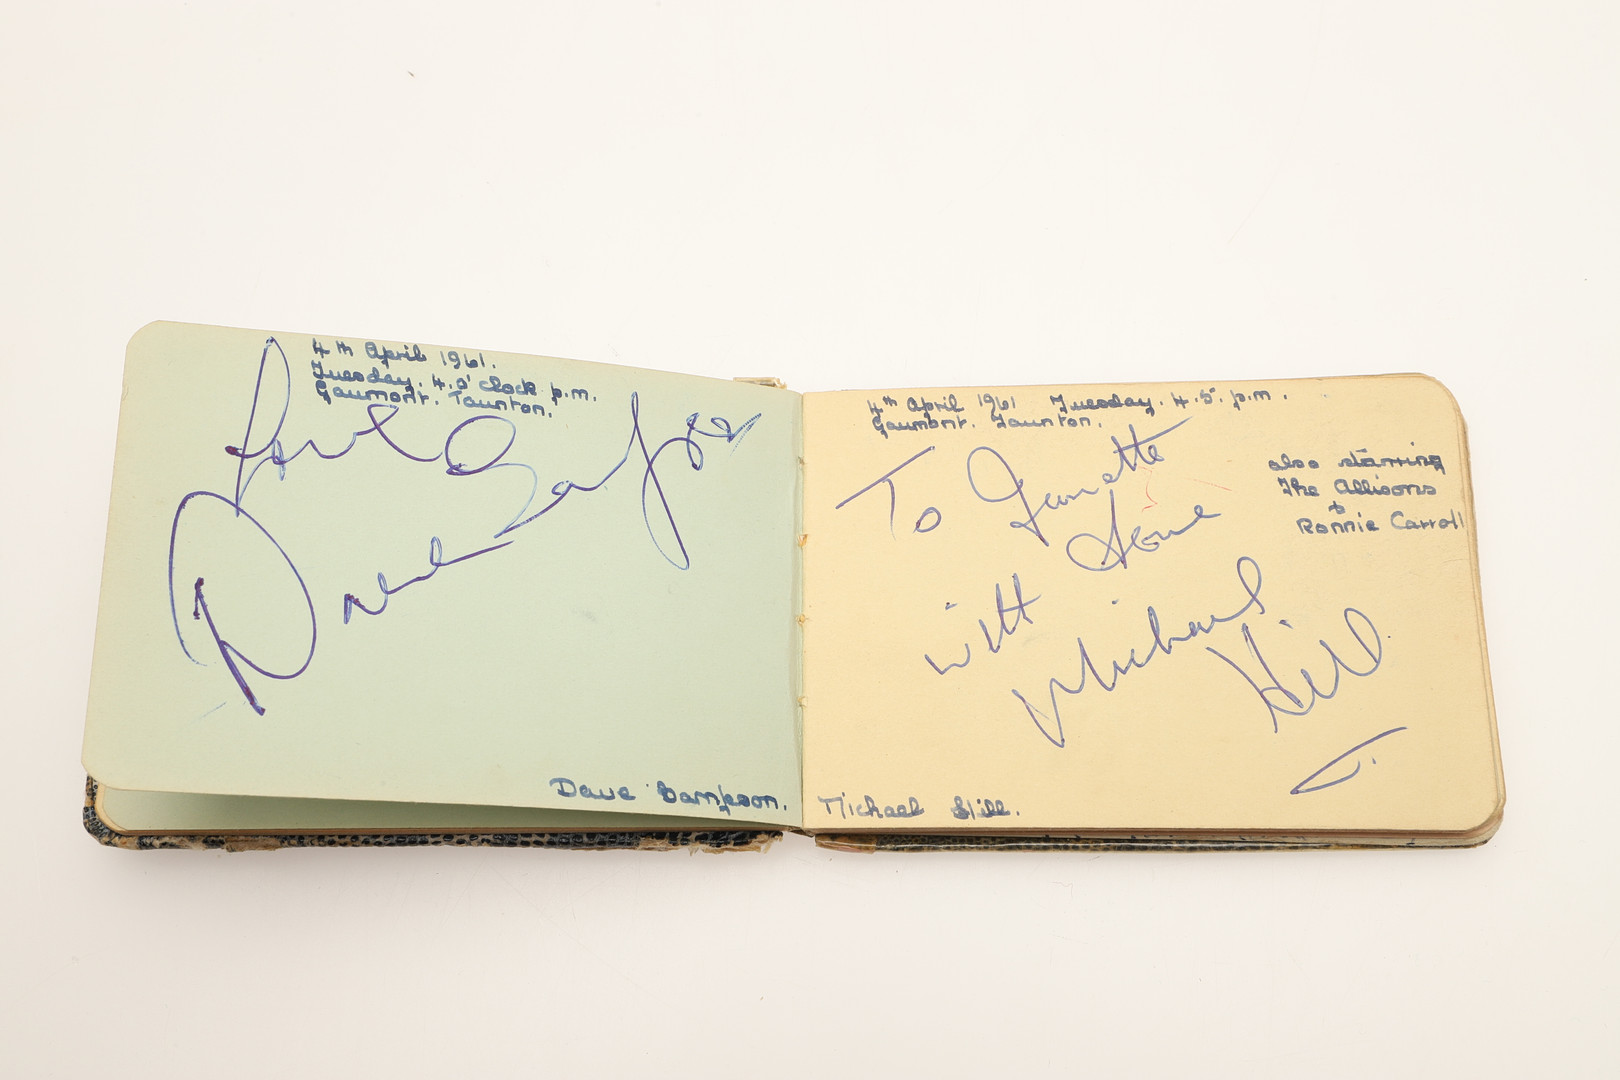 4th April 1961.
Tuesday. 4.o'clock p.m.
Gaumont. Taunton.
Love
Dave Sampson xx
Dave Sampson.
4th April 1961 Tuesday. 4.5. p.m.
Gaumont. Taunton.
To Janette
with Love
Michael
Hill
also starring
The Allisons
&
Ronnie Carroll
Michael Hill.